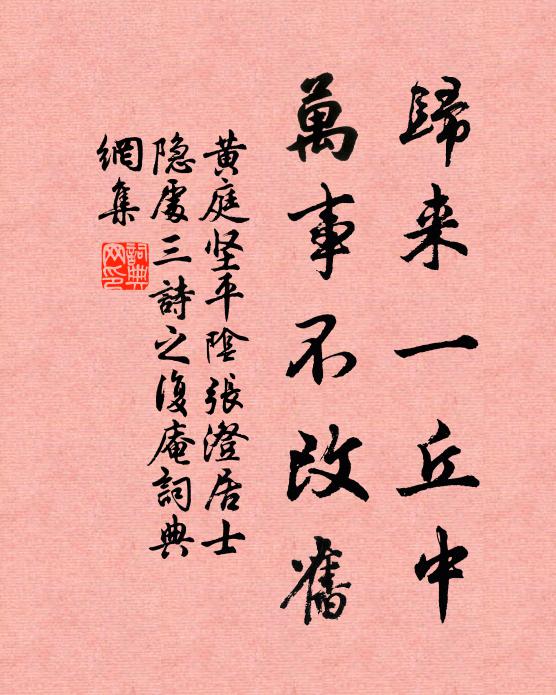 歸来一丘中
萬事不改舊
黄庭坚平陰張澄居士
隐處三詩之復庵詞典
網集
詞典
网印